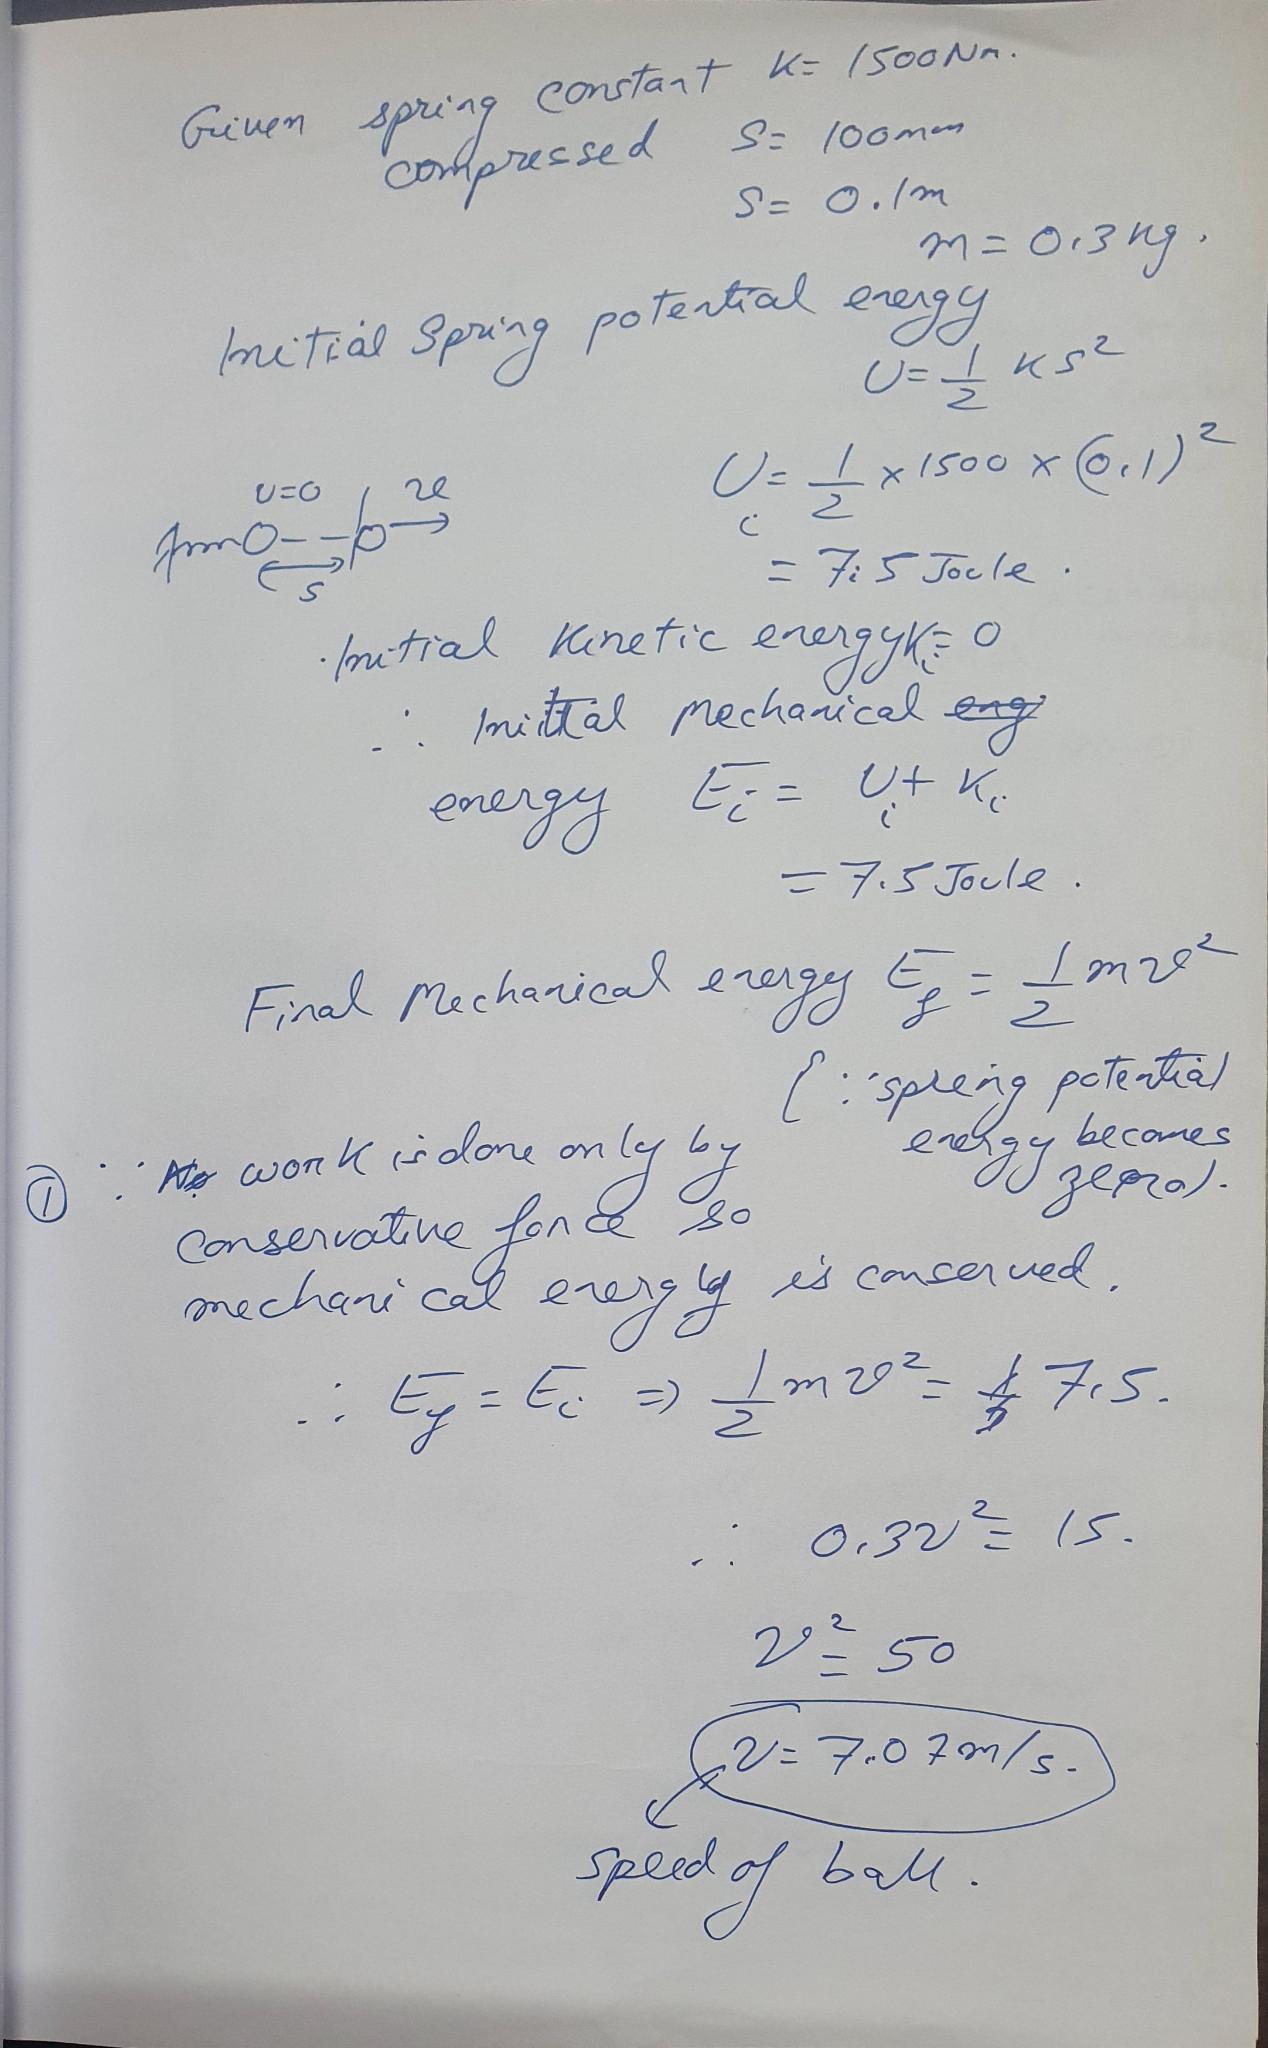 Given spring constant K= 1500Nm.
compressed S= 100mm
S= 0.1m
m= 0.3 kg.
Initial Spring potential energy
U= 1/2 KS²
U=0 v
S
Ui= 1/2 x 1500 x (0.1)²
= 7.5 Joule.
Initial Kinetic energy Ki= 0
∴ Initial Mechanical
energy Ei = Ui+ Ki
= 7.5 Joule.
Final Mechanical energy Ef = 1/2 mv²
(∵ spring potential
energy becomes
zero).
① ∵ work is done only by
conservative force so
mechanical energy is conserved.
∴ Ef = Ei => 1/2 mv² = 7.5.
∴ 0.3v² = 15.
v² = 50
v= 7.07m/s.
speed of ball.